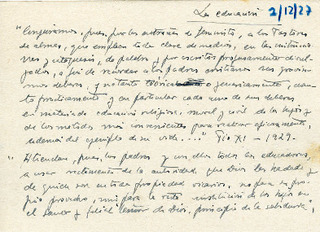 La educación 2/12/27
"Conjuramos, pues, por las entrañas de Jesucristo, a los Pastores
de almas, que empleen toda clase de medios, en las
y catequesis, de palabra y por escritos profusamente divul-
gados, a fin de recordar a los padres cristianos sus graví
simos deberes, y no tanto teórica o genericamente, cuan-
to prácticamente y en particular cada uno de sus deberes
en materia de educación religiosa, moral y civil de los hijos, y
de los métodos más convenientes para realizar eficazmente
además del ejemplo de su vida..." Pío XI - 1929.
"Atiendan, pues, los padres y con ellos todos los educadores,
a usar rectamente de la autoridad que Dios les ha dado y
de quien son en toda propiedad vicarios, no para su pro-
pio provecho, sino para la recta institución de los hijos en
el santo y filial temor de Dios, principio de la sabiduría",